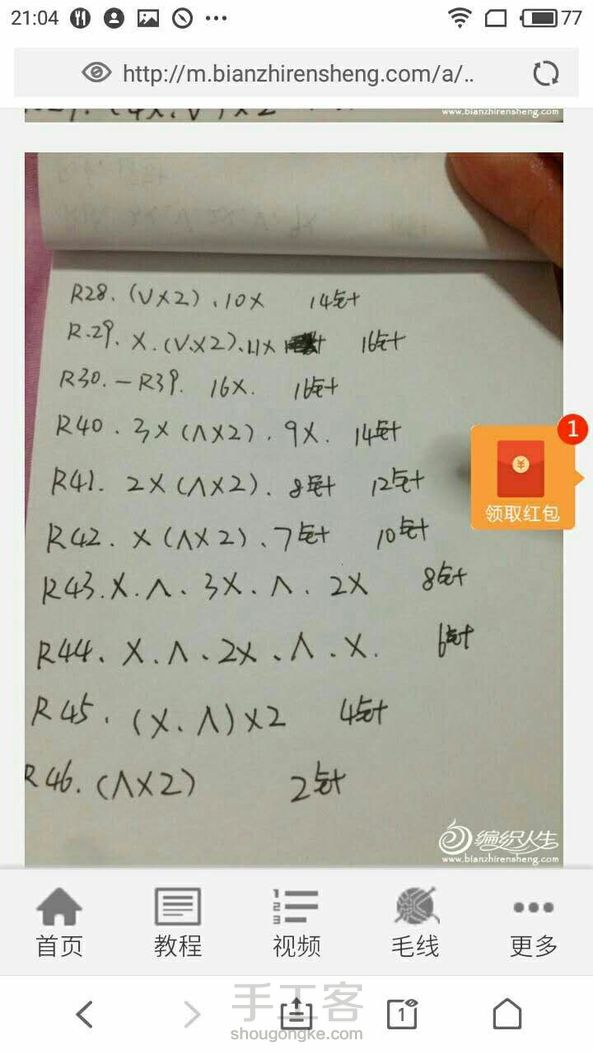 21:04
77
http://m.bianzhirensheng.com/a/..
www.bianzhirensheng.com
R28. (V×2).10X 14针
R.29. X.(V×2).11X 16针
R30.一R39. 16X. 16针
R40.3X(Λ×2).9X. 14针
R41. 2X(Λ×2).8针 12针
R42. X(Λ×2).7针 10针
R43.X.Λ.3X.Λ.2X 8针
R44.X.Λ.2X.Λ.X. 6针
R45.(X.Λ)×2 4针
R46.(Λ×2) 2针
1
¥
领取红包
编织人生
www.bianzhirensheng.com
首页 教程 视频 毛线 更多
1
手工客
shougongke.com